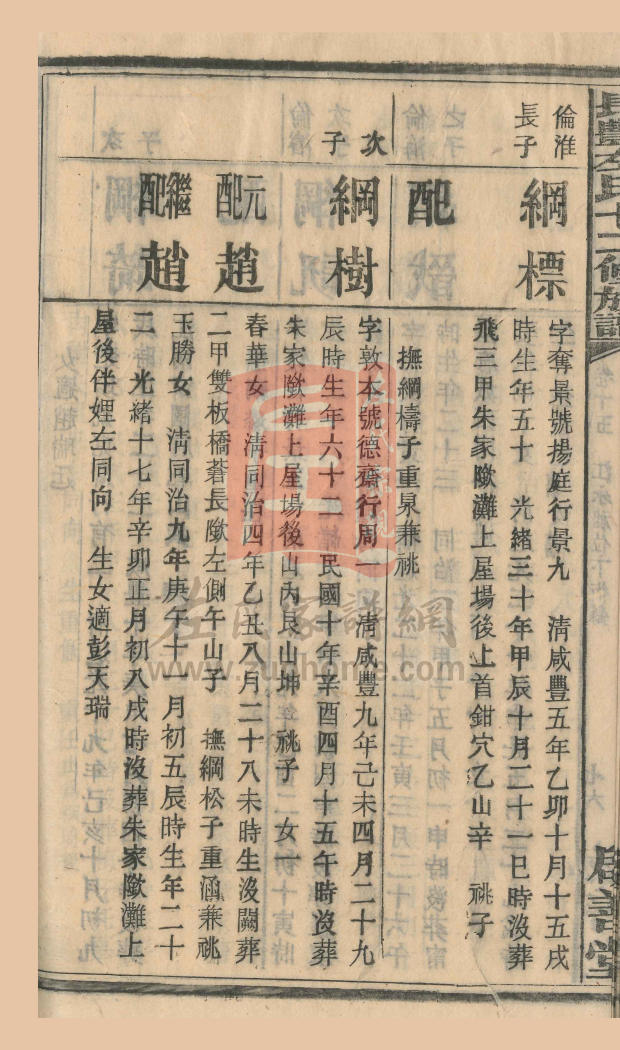 長豐左氏十二修族譜
七六
啟善堂
倫淮
長子
綱標
字奪景號揚庭行景九　清咸豐五年乙卯十月十五戌
時生年五十　光緒三十年甲辰十月二十一巳時沒葬
飛三甲朱家歟灘上屋場後上首鉗穴乙山辛　祧子
配
撫綱檮子重泉兼祧
次子
綱樹
字敦本號德齋行周一　清咸豐九年己未四月二十九
辰時生年六十二　民國十年辛酉四月十五午時沒葬
朱家歟灘上屋場後山內艮山坤　祧子　女一
元配趙
春華女　清同治四年乙丑八月二十八未時生沒闕葬
二甲雙板橋蒼長歟左側午山子　撫綱松子重涵兼祧
繼配趙
玉勝女　清同治九年庚午十一月初五辰時生年二十
二　光緒十七年辛卯正月初八戌時沒葬朱家歟灘上
屋後伴娌左同向　生女適彭天瑞
左氏家譜網
www.zuohome.com